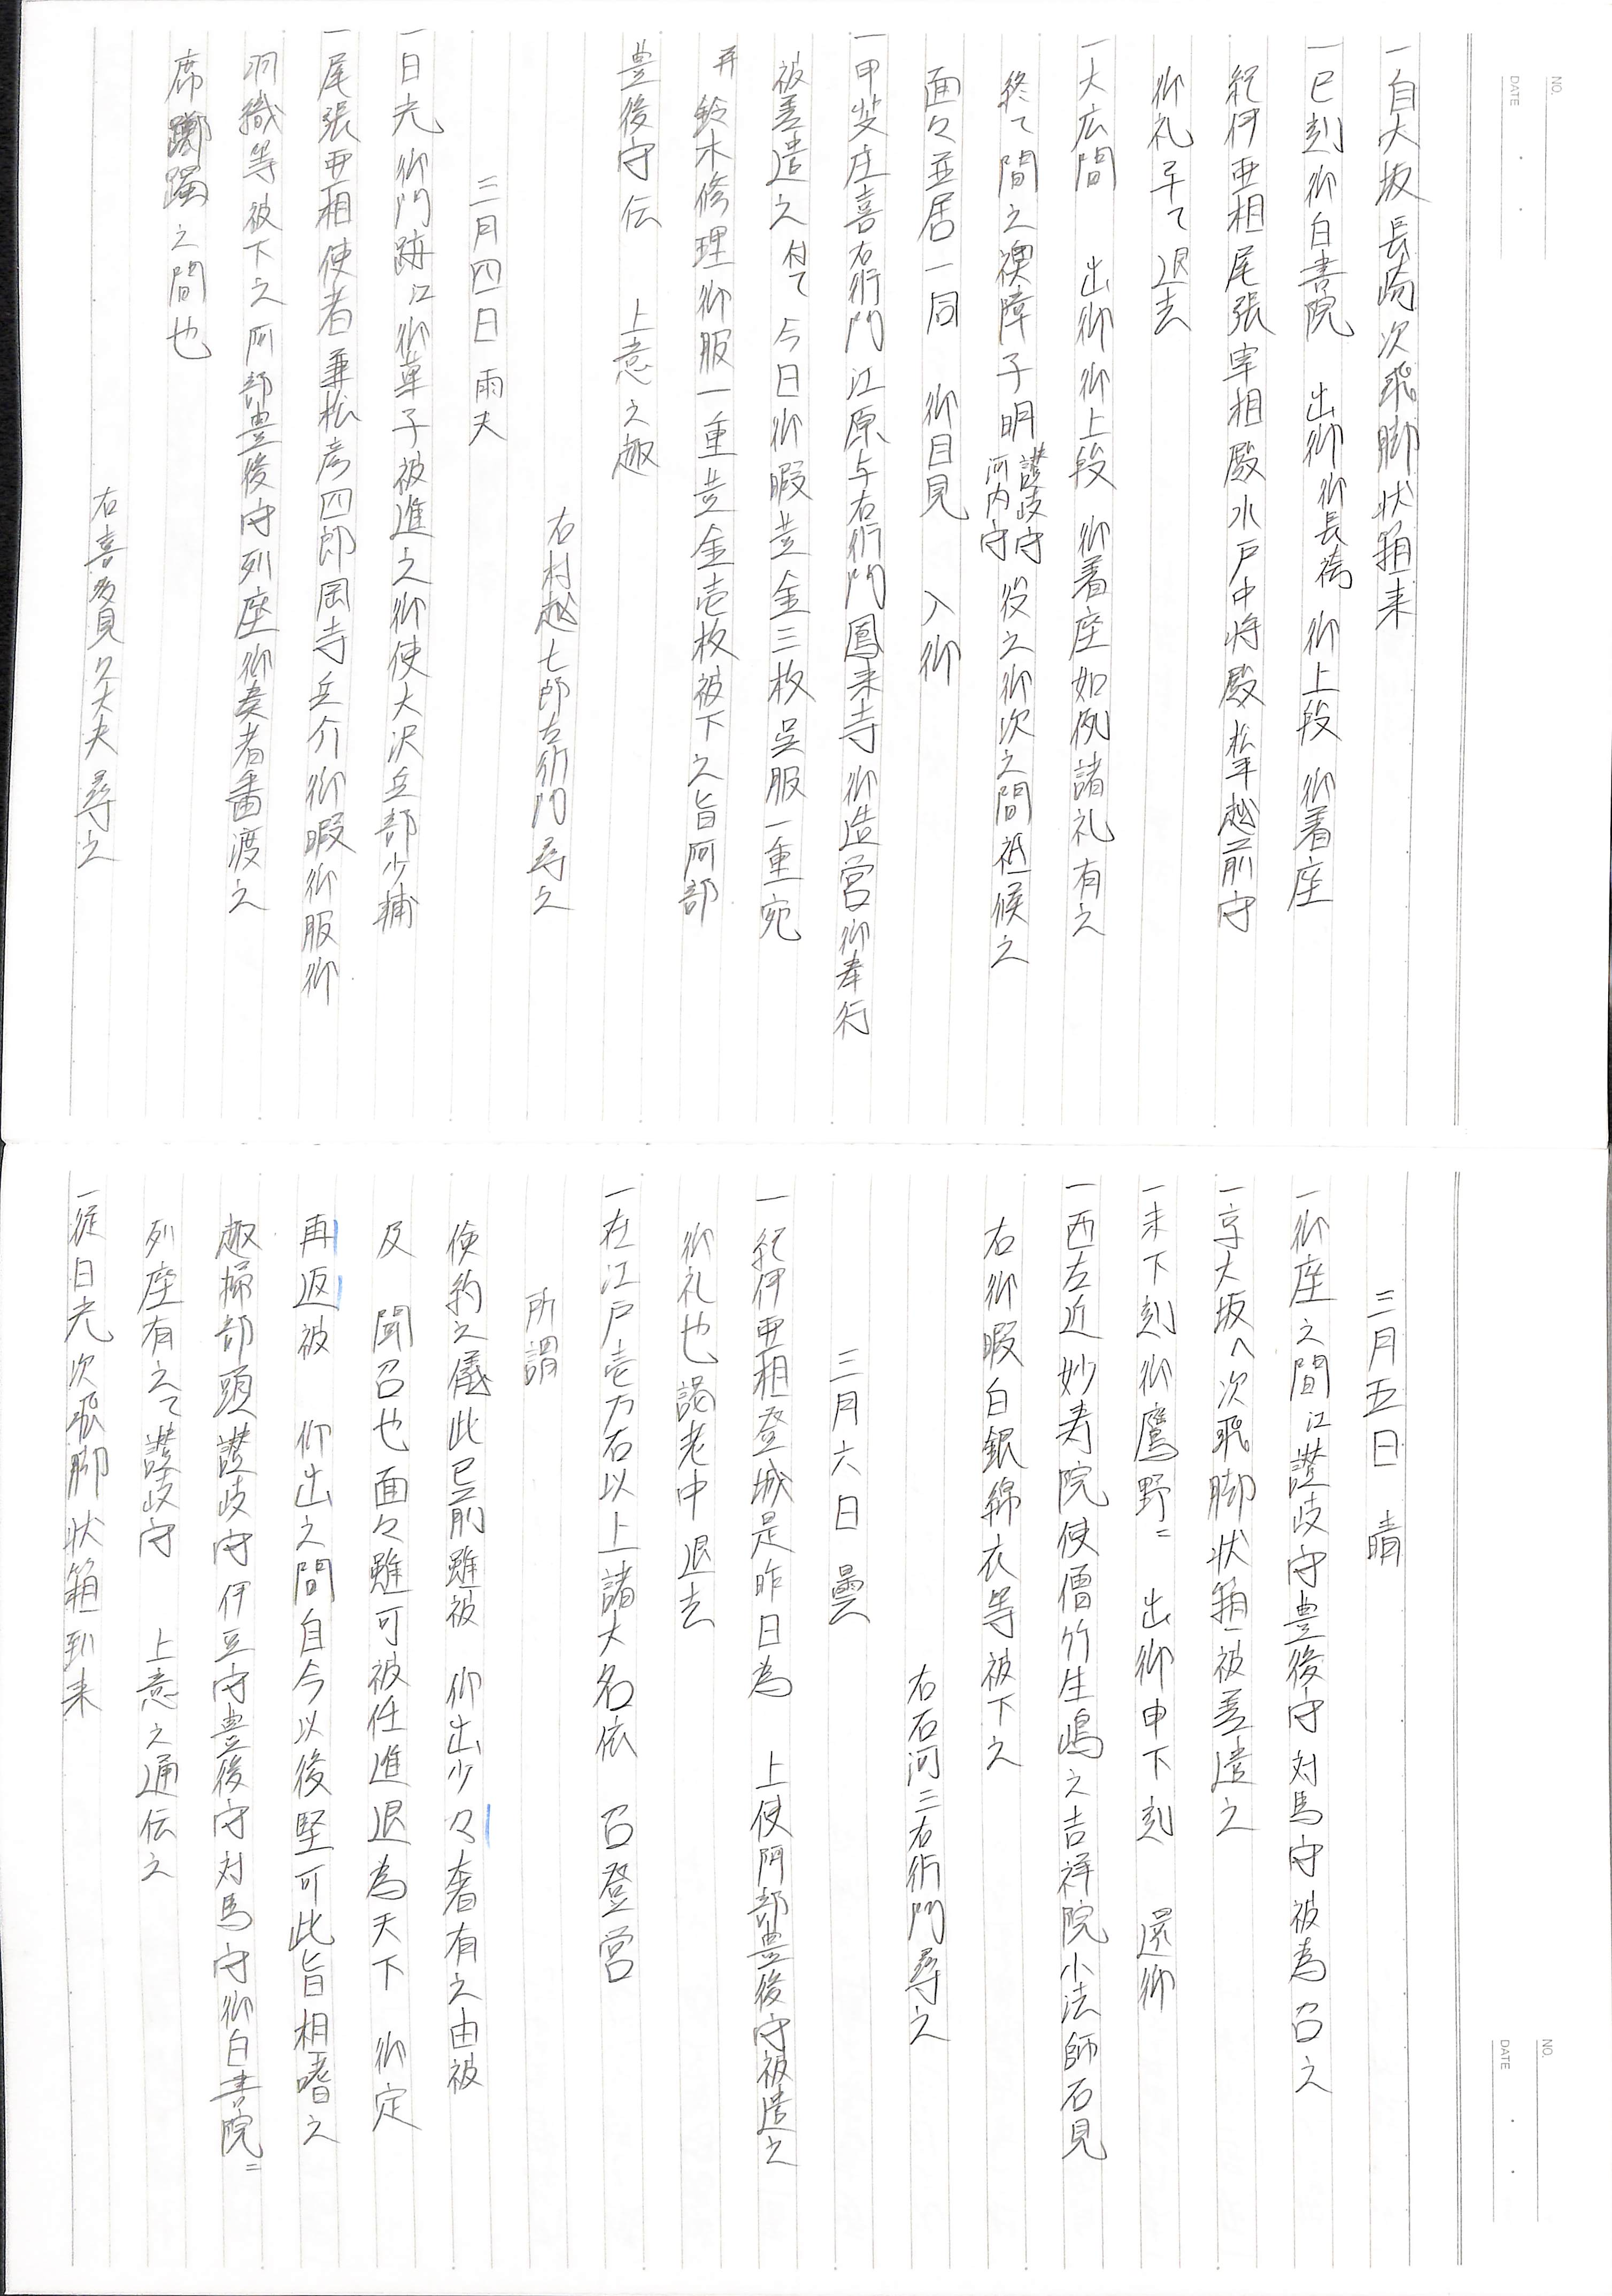 NO.
DATE
一自大坂長崎次飛脚状箱来
一巳刻御白書院　出御御長袴　御上段　御着座
紀伊亜相尾張宰相殿水戸中将殿松平越前守
御礼卒て退去
一大広間　出御御上段　御着座如例諸礼有之
終て間之襖障子明讃岐守河内守役之御次之間祗候之
面々並居一同　御目見　入御
一甲斐庄喜右衛門江原与右衛門鳳来寺御造営御奉行
被差遣之付て今日御暇並金三枚呉服一重宛
并鈴木修理御服一重並金壱枚被下之旨阿部
豊後守伝　上意之趣
右村越七郎左衛門尋之
三月四日雨天
一日光御門跡江御菓子被進之御使大沢兵部少輔
一尾張亜相使者兼松彦四郎岡寺兵介御暇御服御
羽織等被下之阿部豊後守列座御奏者番渡之
席躑躅之間也
右喜多見久大夫尋之
NO.
DATE
三月五日　晴
一御座之間江讃岐守豊後守対馬守被為召之
一京大坂へ次飛脚状箱被差遣之
一未下刻御鷹野ニ　出御申下刻　還御
一西左近妙寿院使僧竹生嶋之吉祥院小法師石見
右御暇白銀綿衣等被下之
右石河三右衛門尋之
三月六日　曇
一紀伊亜相登城是昨日為　上使阿部豊後守被遣之
御礼也謁老中退去
一在江戸壱万石以上諸大名依　召登営
所謂
倹約之儀此已前雖被　仰出少々奢有之由被
及　聞召也面々雖可被任進退為天下　御定
再返被　仰出之間自今以後堅可此旨相嗜之
趣掃部頭讃岐守伊豆守豊後守対馬守御白書院ニ
列座有之て讃岐守　上意之通伝之
一従日光次飛脚状箱到来